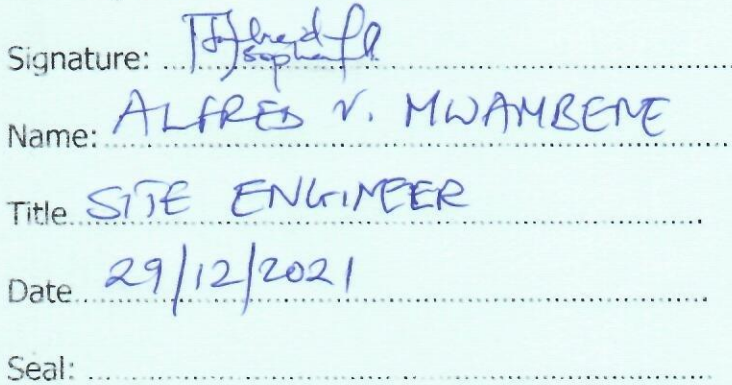 Signature:
Name: ALFRED V. MWAMBENE
Title SITE ENGINEER
Date 29/12/2021
Seal: